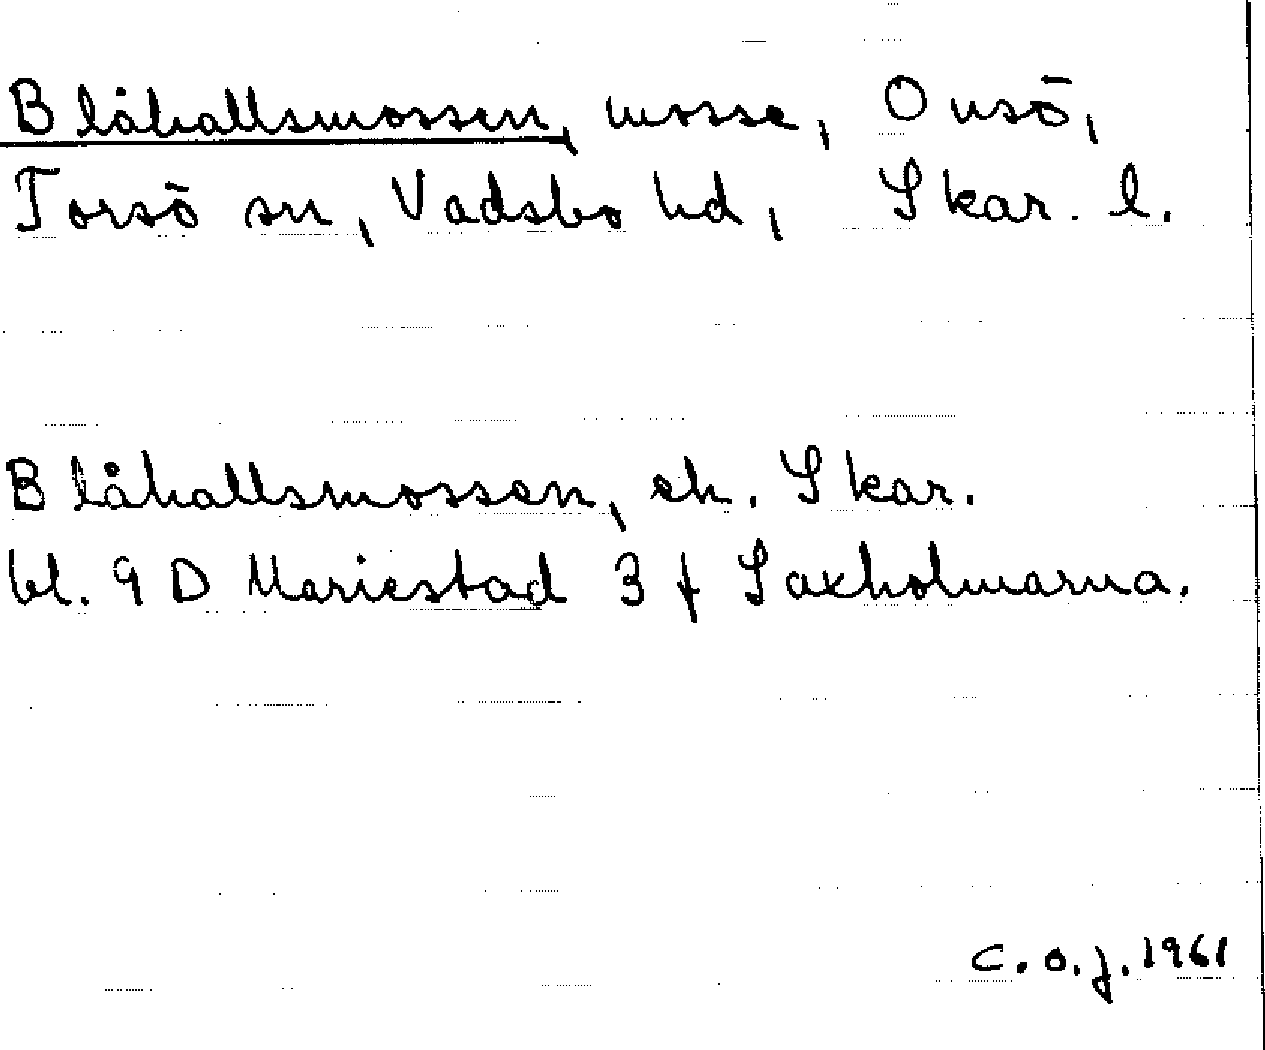 Blåhallsmossen, mosse, Onsö,
Torsö sn, Vadsbo hd, Skar. l.
Blåhallsmossen, ek. Skar.
bl. 9 D Mariestad 3 f Saxholmarna.
C.o.j. 1961